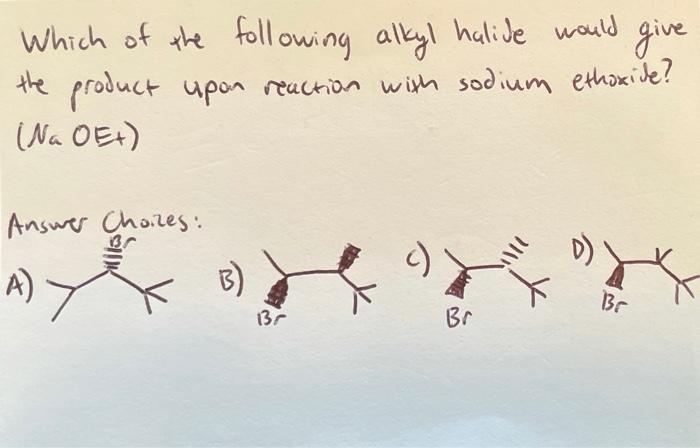 Which of the following alkyl halide would give
the product upon reaction with sodium ethoxide?
(Na OEt)
Answer Choices:
A) Br
B) Br
C) Br
D) Br